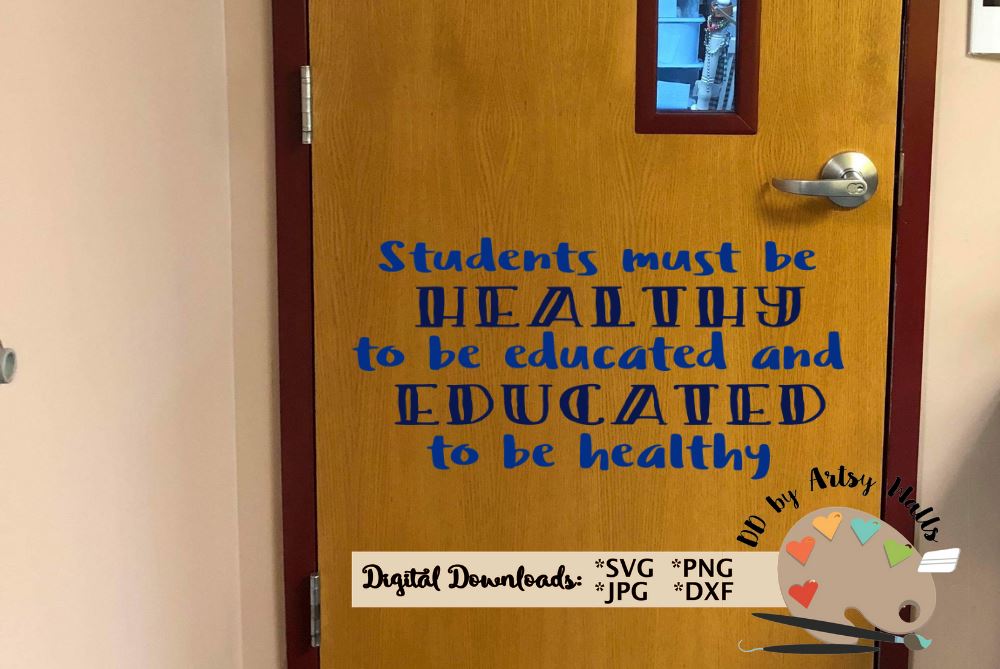 Students must be
HEALTHY
to be educated and
EDUCATED
to be healthy
DD by Artsy Walls
Digital Downloads: *SVG *PNG
*JPG *DXF